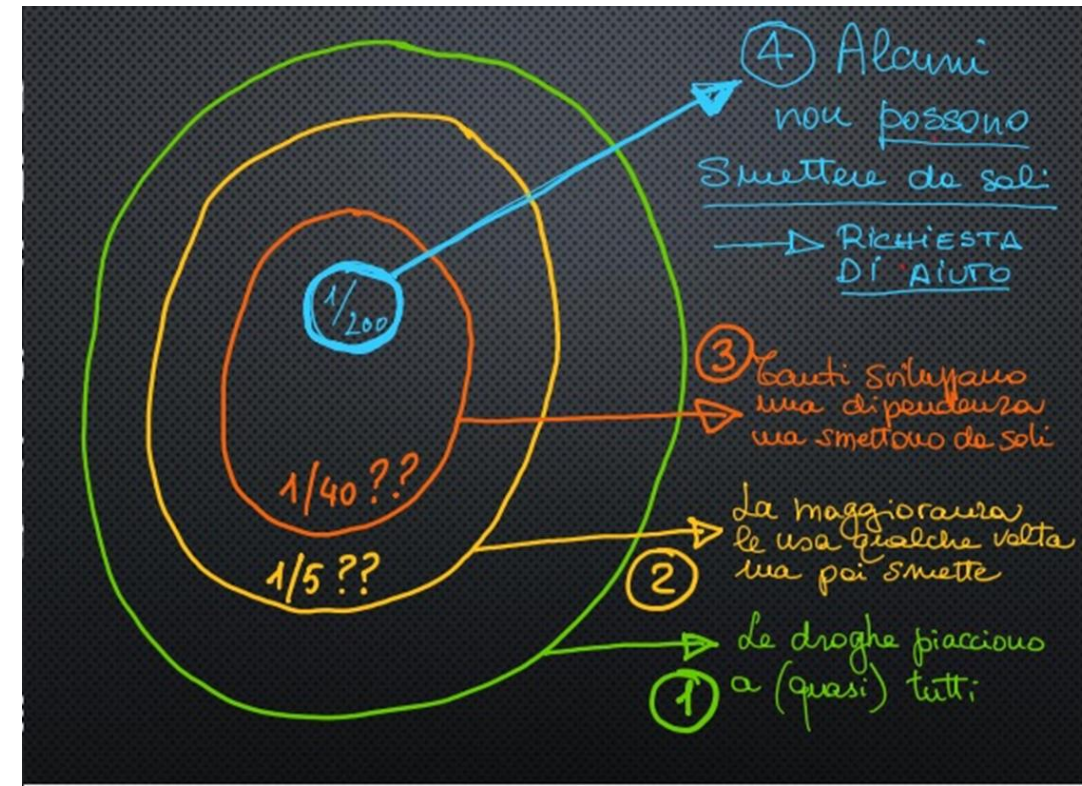 4 Alcuni
non possono
smettere da soli
RICHIESTA
DI AIUTO
1/200
3 Tanti sviluppano
una dipendenza
ma smettono da soli
1/40 ??
La maggioranza
le usa qualche volta
2 ma poi smette
1/5 ??
Le droghe piacciono
1 a (quasi) tutti